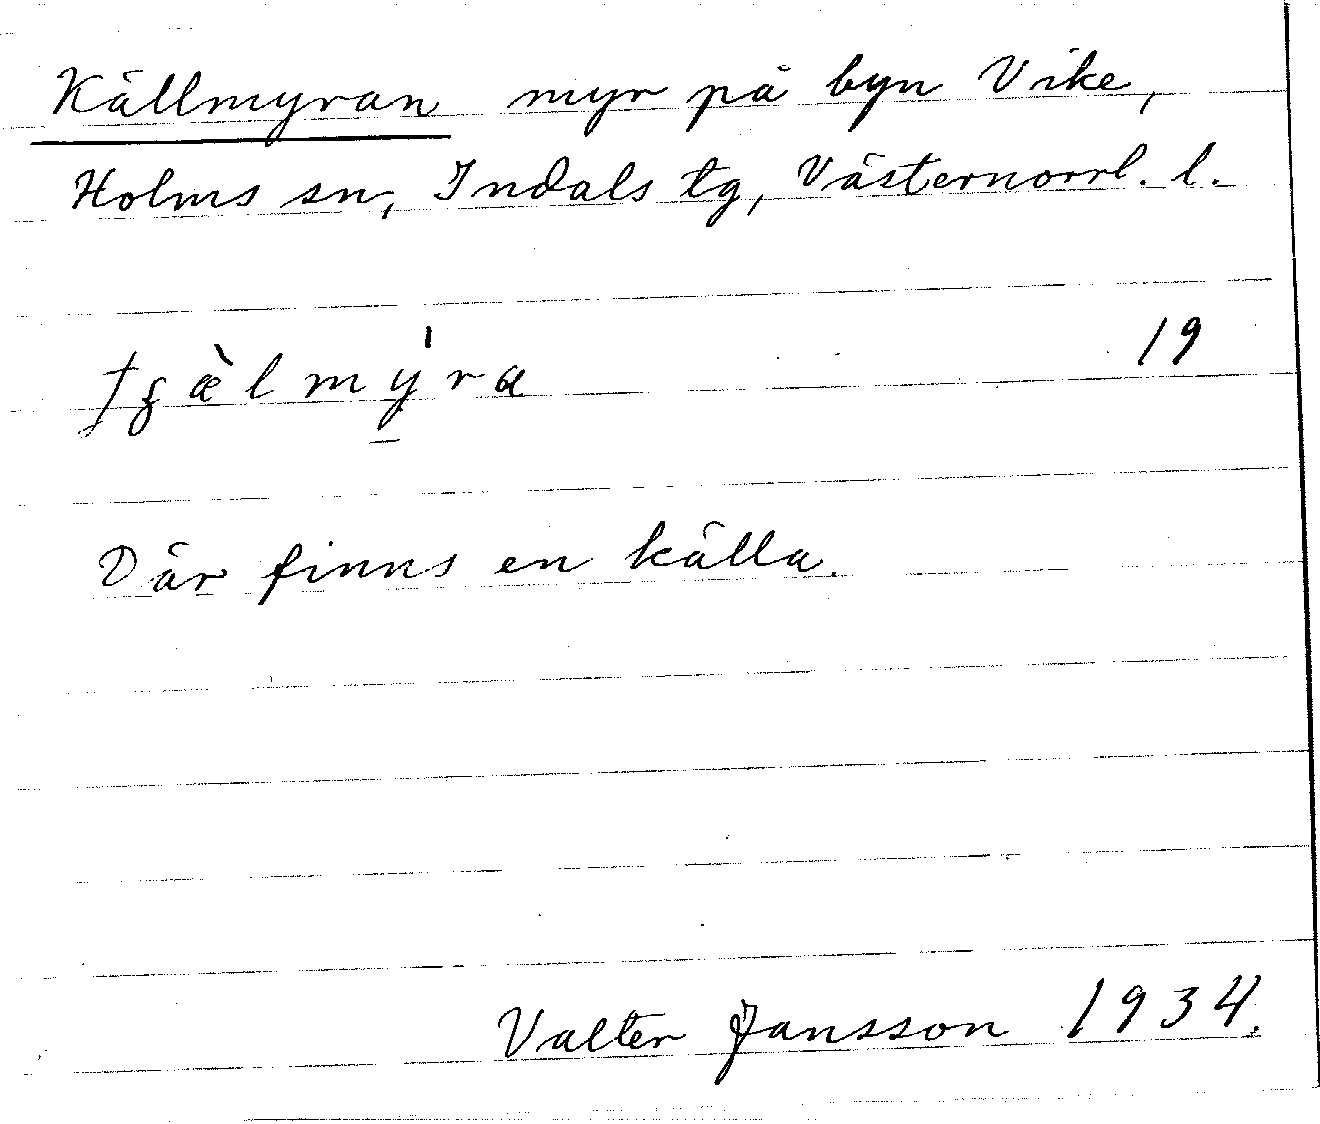 Källmyran myr på byn Vike,
Holms sn, Indals tg, Västernorrl. l.
tʂæ̀lmýra 19
Där finns en källa.
Valter Jansson 1934.